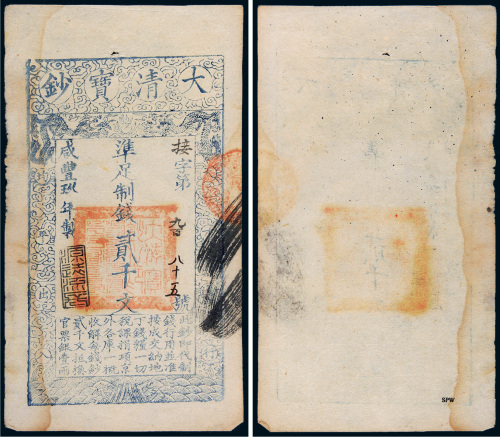 大清寶鈔
接字第 八十五號
準足制錢貳千文
咸豐玖年製
此鈔即代制
錢行用並准
按成交納地
丁錢糧一切
稅課捐項京
外各庫一概
收解每錢鈔
貳千文抵換
官票銀壹兩
SPW